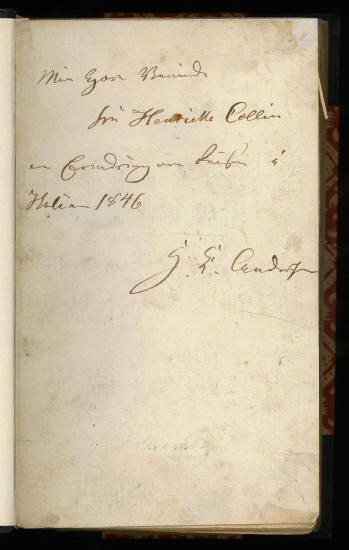 Min
fru Henriette Collin
en Erindring om Reisen i
Italien 1846
H. C. Andersen